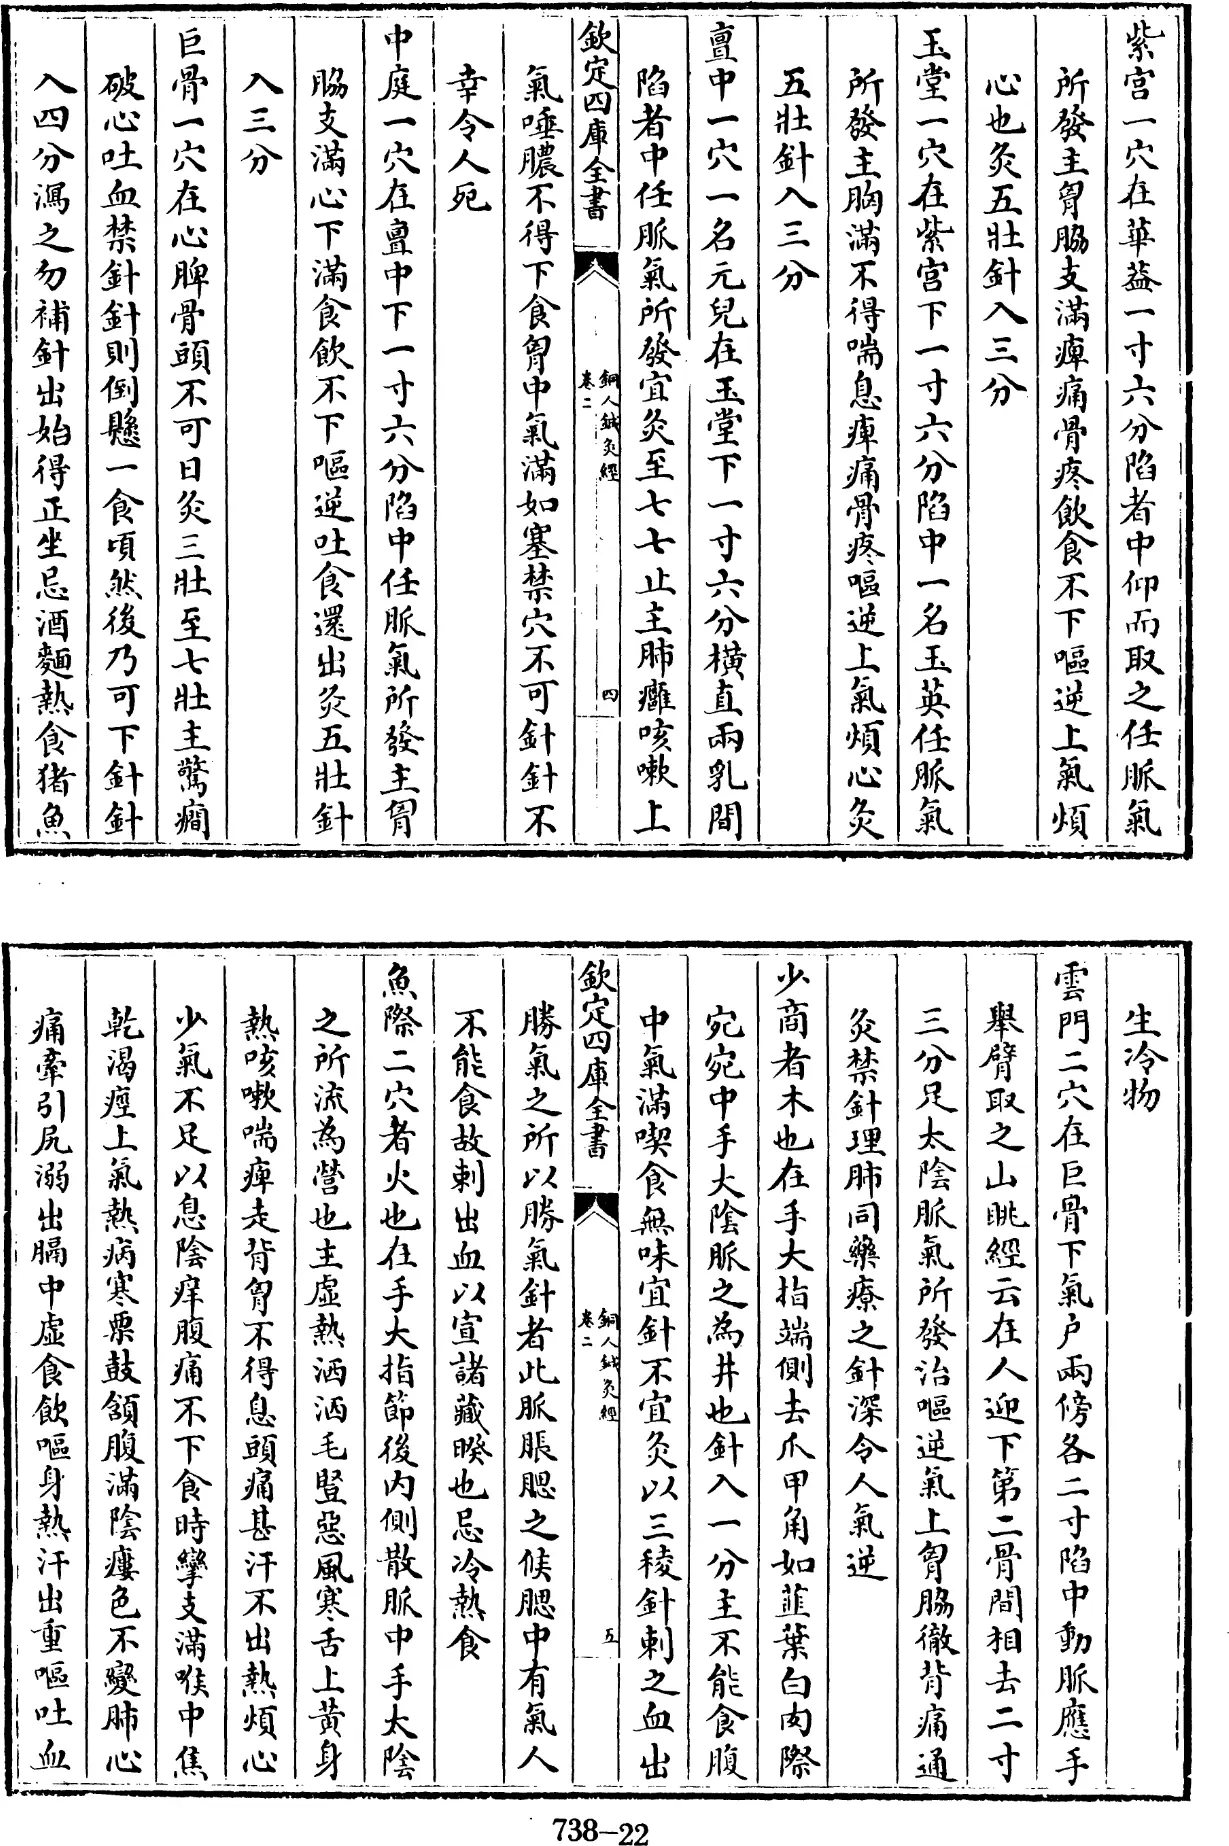 紫宫一穴在華葢一寸六分陷者中仰而取之任脈氣
所發主胷脇支滿痺痛骨疼飲食不下嘔逆上氣煩
心也灸五壯針入三分
玉堂一穴在紫宫下一寸六分陷中一名玉英任脈氣
所發主胸滿不得喘息痺痛骨疼嘔逆上氣煩心灸
五壯針入三分
亶中一穴一名元兒在玉堂下一寸六分横直兩乳間
陷者中任脈氣所發宜灸至七七止主肺癰咳嗽上
欽定四庫全書
銅人鍼灸經
卷二
四
氣唾膿不得下食胷中氣滿如塞禁穴不可針針不
幸令人死
中庭一穴在亶中下一寸六分陷中任脈氣所發主胷
脇支滿心下滿食飲不下嘔逆吐食還出灸五壯針
入三分
巨骨一穴在心脾骨頭不可日灸三壯至七壯主驚癎
破心吐血禁針針則倒懸一食頃然後乃可下針針
入四分瀉之勿補針出始得正坐忌酒麵熱食猪魚
生冷物
雲門二穴在巨骨下氣户兩傍各二寸陷中動脈應手
舉臂取之山眺經云在人迎下第二骨間相去二寸
三分足太陰脈氣所發治嘔逆氣上胷脇徹背痛通
灸禁針理肺同藥療之針深令人氣逆
少商者木也在手大指端側去爪甲角如韮葉白肉際
宛宛中手大陰脈之為井也針入一分主不能食腹
中氣滿喫食無味宜針不宜灸以三稜針刺之血出
欽定四庫全書
銅人鍼灸經
卷二
五
勝氣之所以勝氣針者此脈脹腮之候腮中有氣人
不能食故刺出血以宣諸藏暌也忌冷熱食
魚際二穴者火也在手大指節後内側散脈中手太陰
之所流為營也主虚熱洒洒毛豎惡風寒舌上黄身
熱咳嗽喘痺走背胷不得息頭痛甚汗不出熱煩心
少氣不足以息陰痒腹痛不下食時攣支滿喉中焦
乾渴痙上氣熱病寒栗鼓頷腹滿陰痿色不變肺心
痛牽引尻溺出膈中虚食飲嘔身熱汗出重嘔吐血
738-22